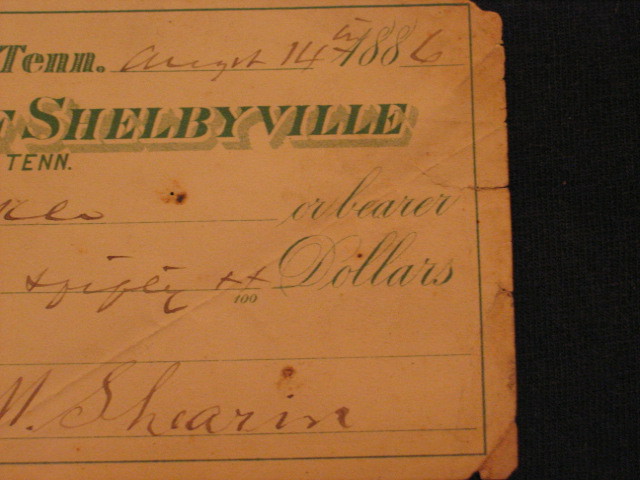 Tenn. Augst 14th 1886
SHELBYVILLE
TENN.
or bearer
& fifty xx/100 Dollars
M. Shearin